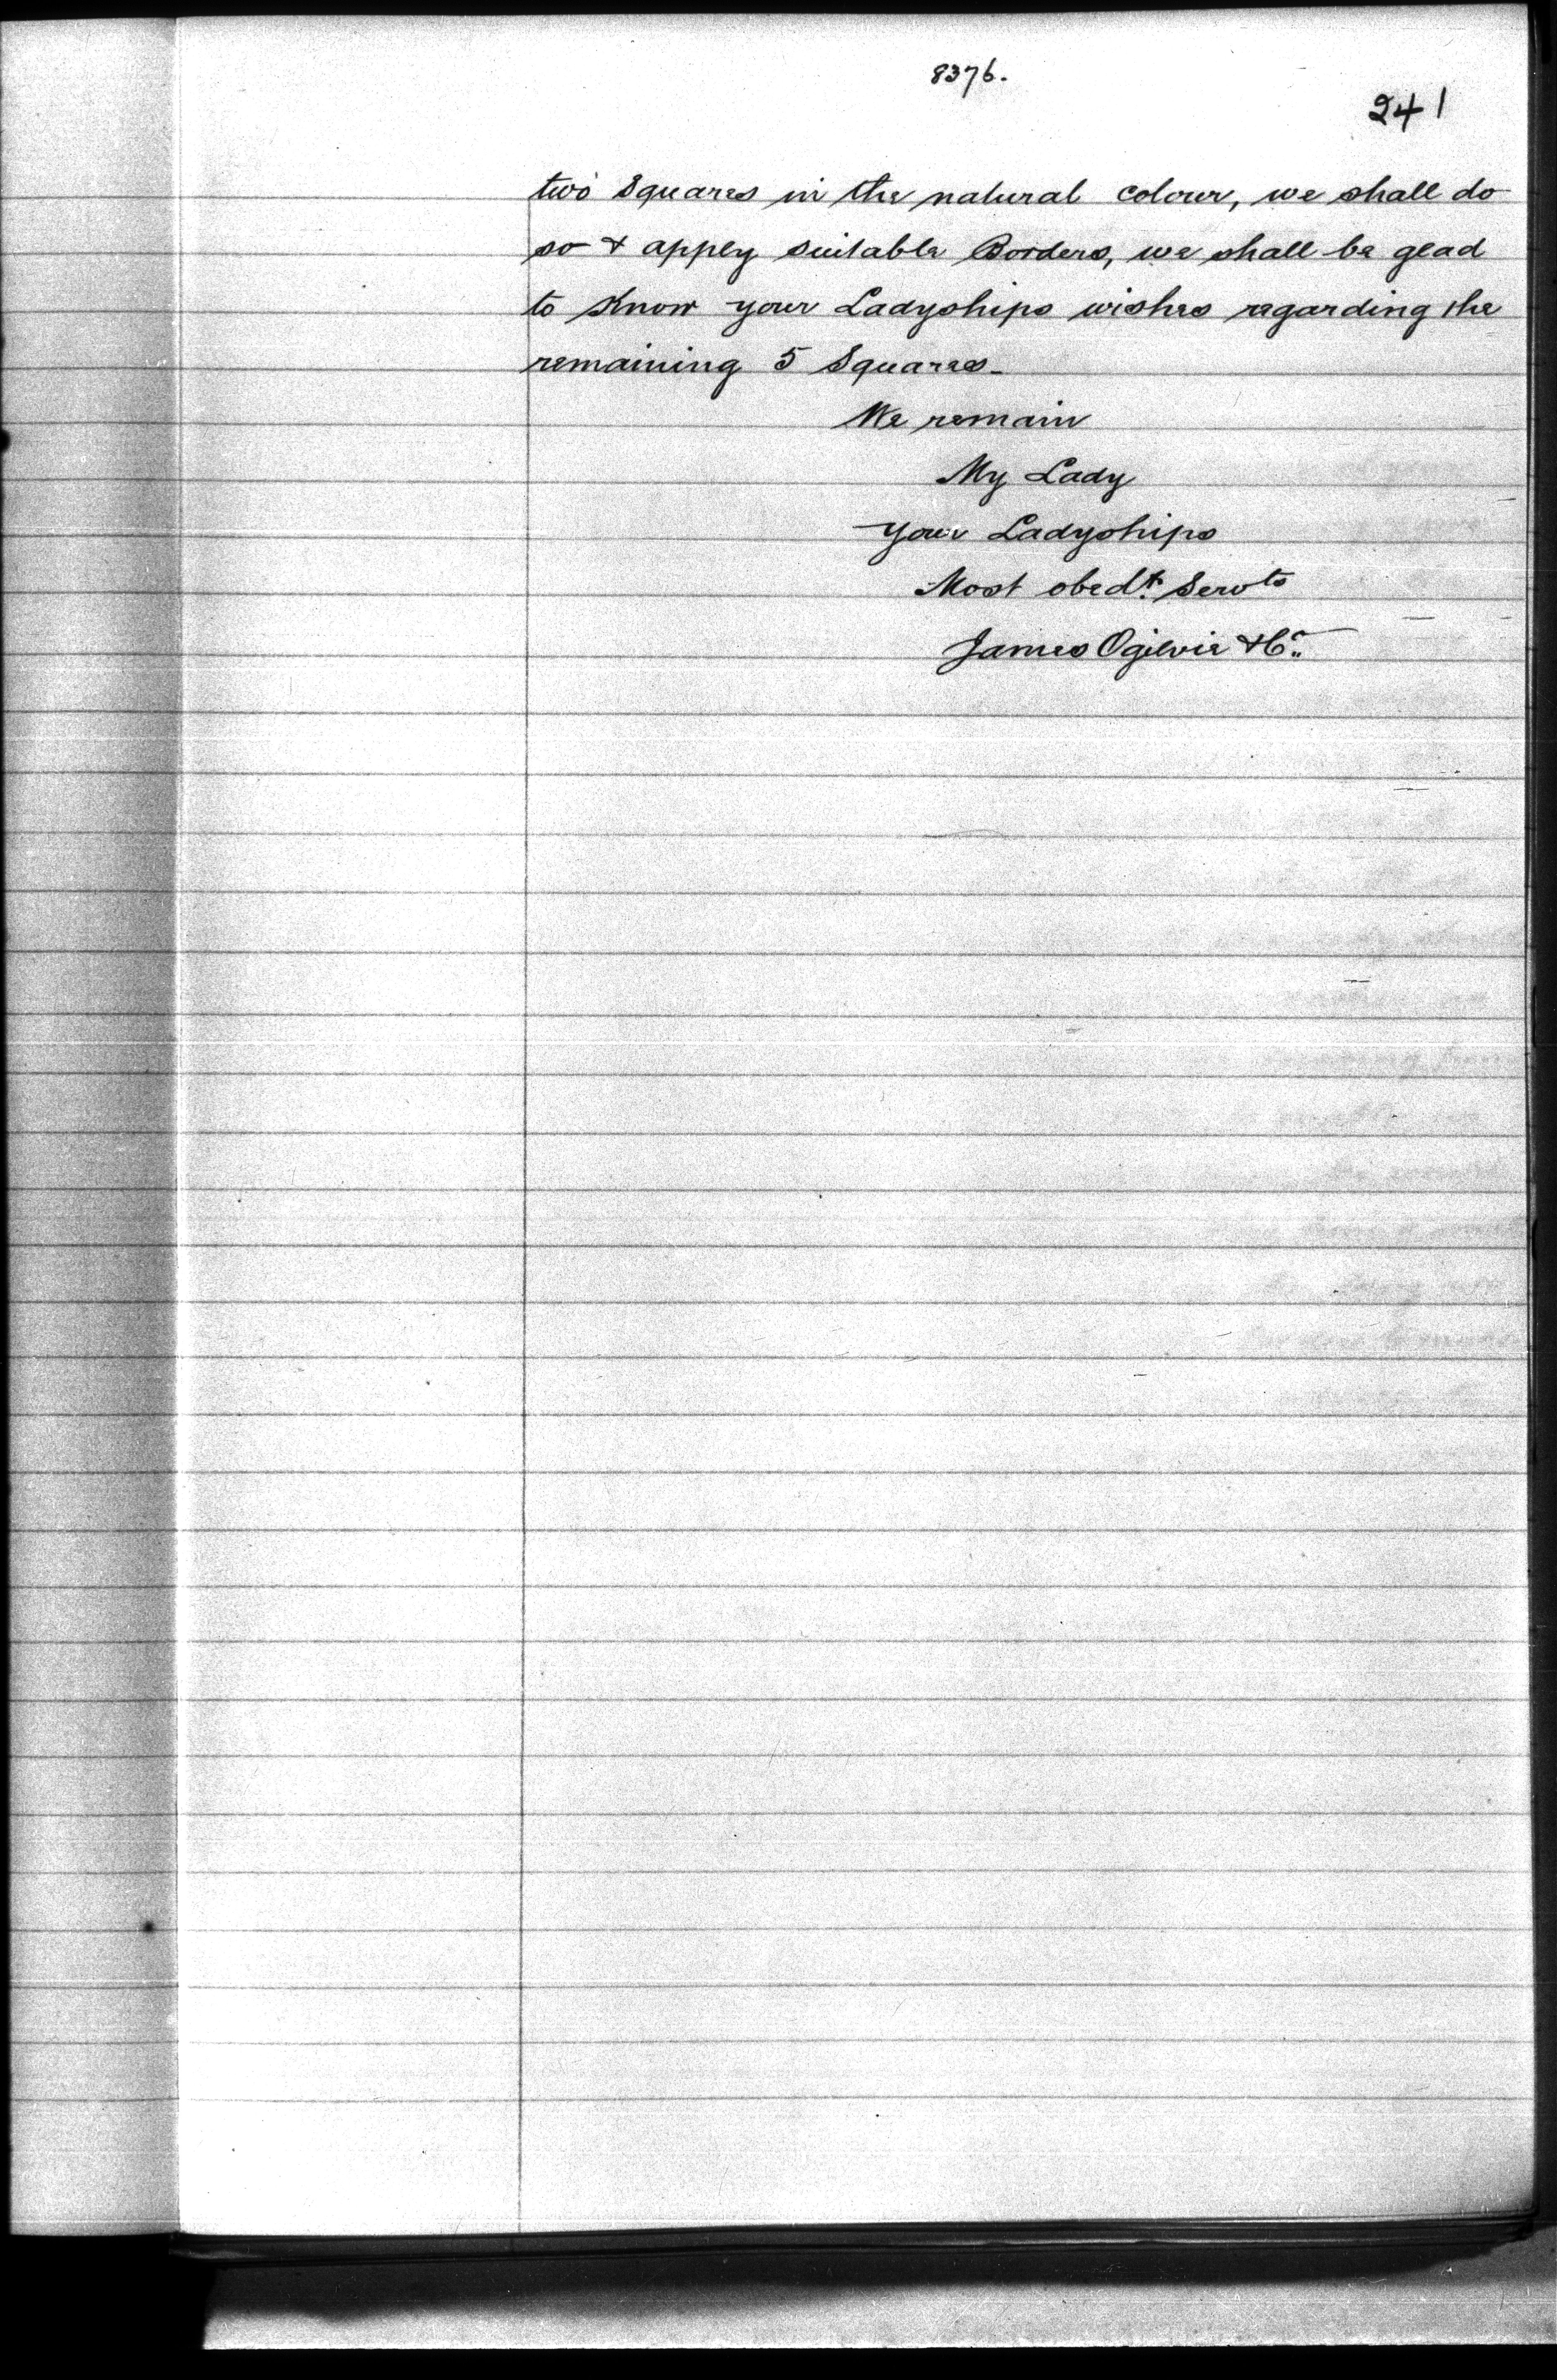 8376.
241
two Squares in the natural colour, we shall do
so & apply suitable Borders, we shall be glad
to know your Ladyships wishes regarding the
remaining 5 Squares_
We remain
My Lady
your Ladyships
Most obedt. Servts
James Ogilvie & Co